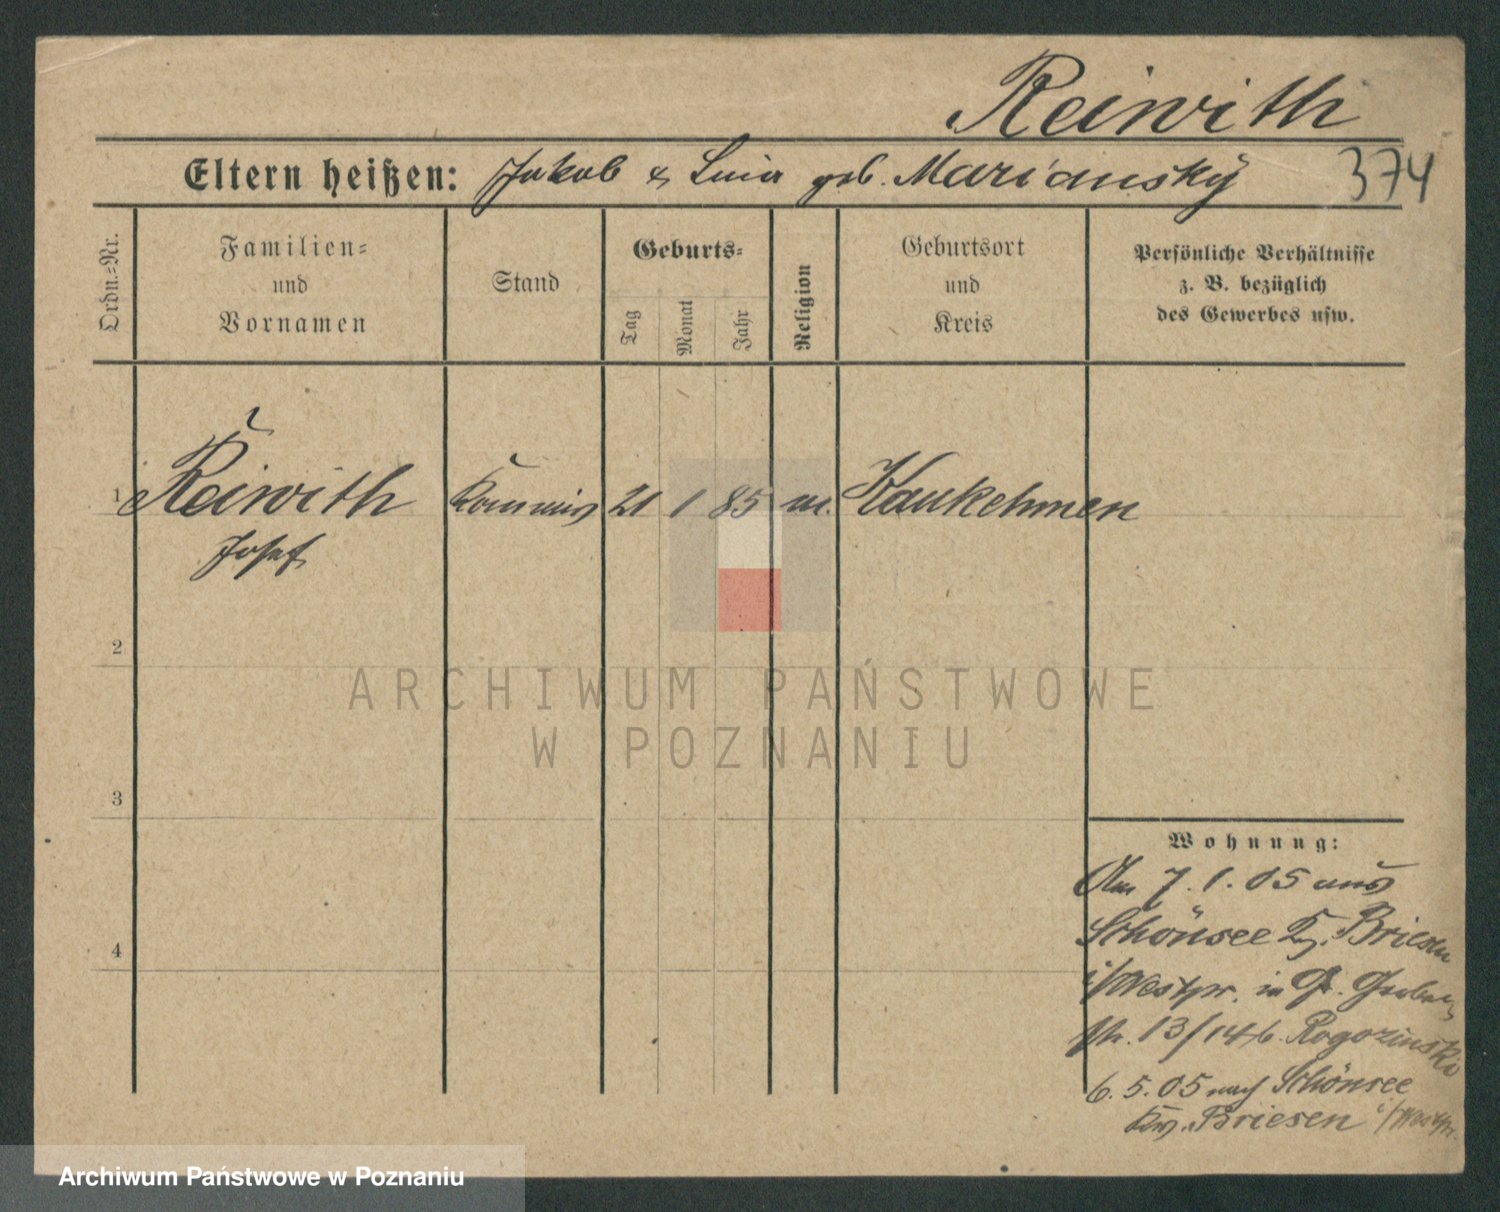 Reiwith
Eltern heißen: Jakob & Lina geb. Mariansky 374
Ordn.-Nr.
Familien-
und
Vornamen
Stand
Geburts-
Tag
Monat
Jahr
Religion
Geburtsort
und
Kreis
Persönliche Verhältnisse
z. B. bezüglich
des Gewerbes usw.
1 Reiwith Kommis 21 1 85 m. Kaukehmen
Josef
2
ARCHIWUM PAŃSTWOWE
W POZNANIU
3
Wohnung:
Am 7.1.05 aus
Schönsee Kr. Briesen
i/Westpr. in Gr. Gerber
str. 13/14 b. Rogozinski
6.5.05 nach Schönsee
Krs. Briesen i/Westpr.
4
Archiwum Państwowe w Poznaniu